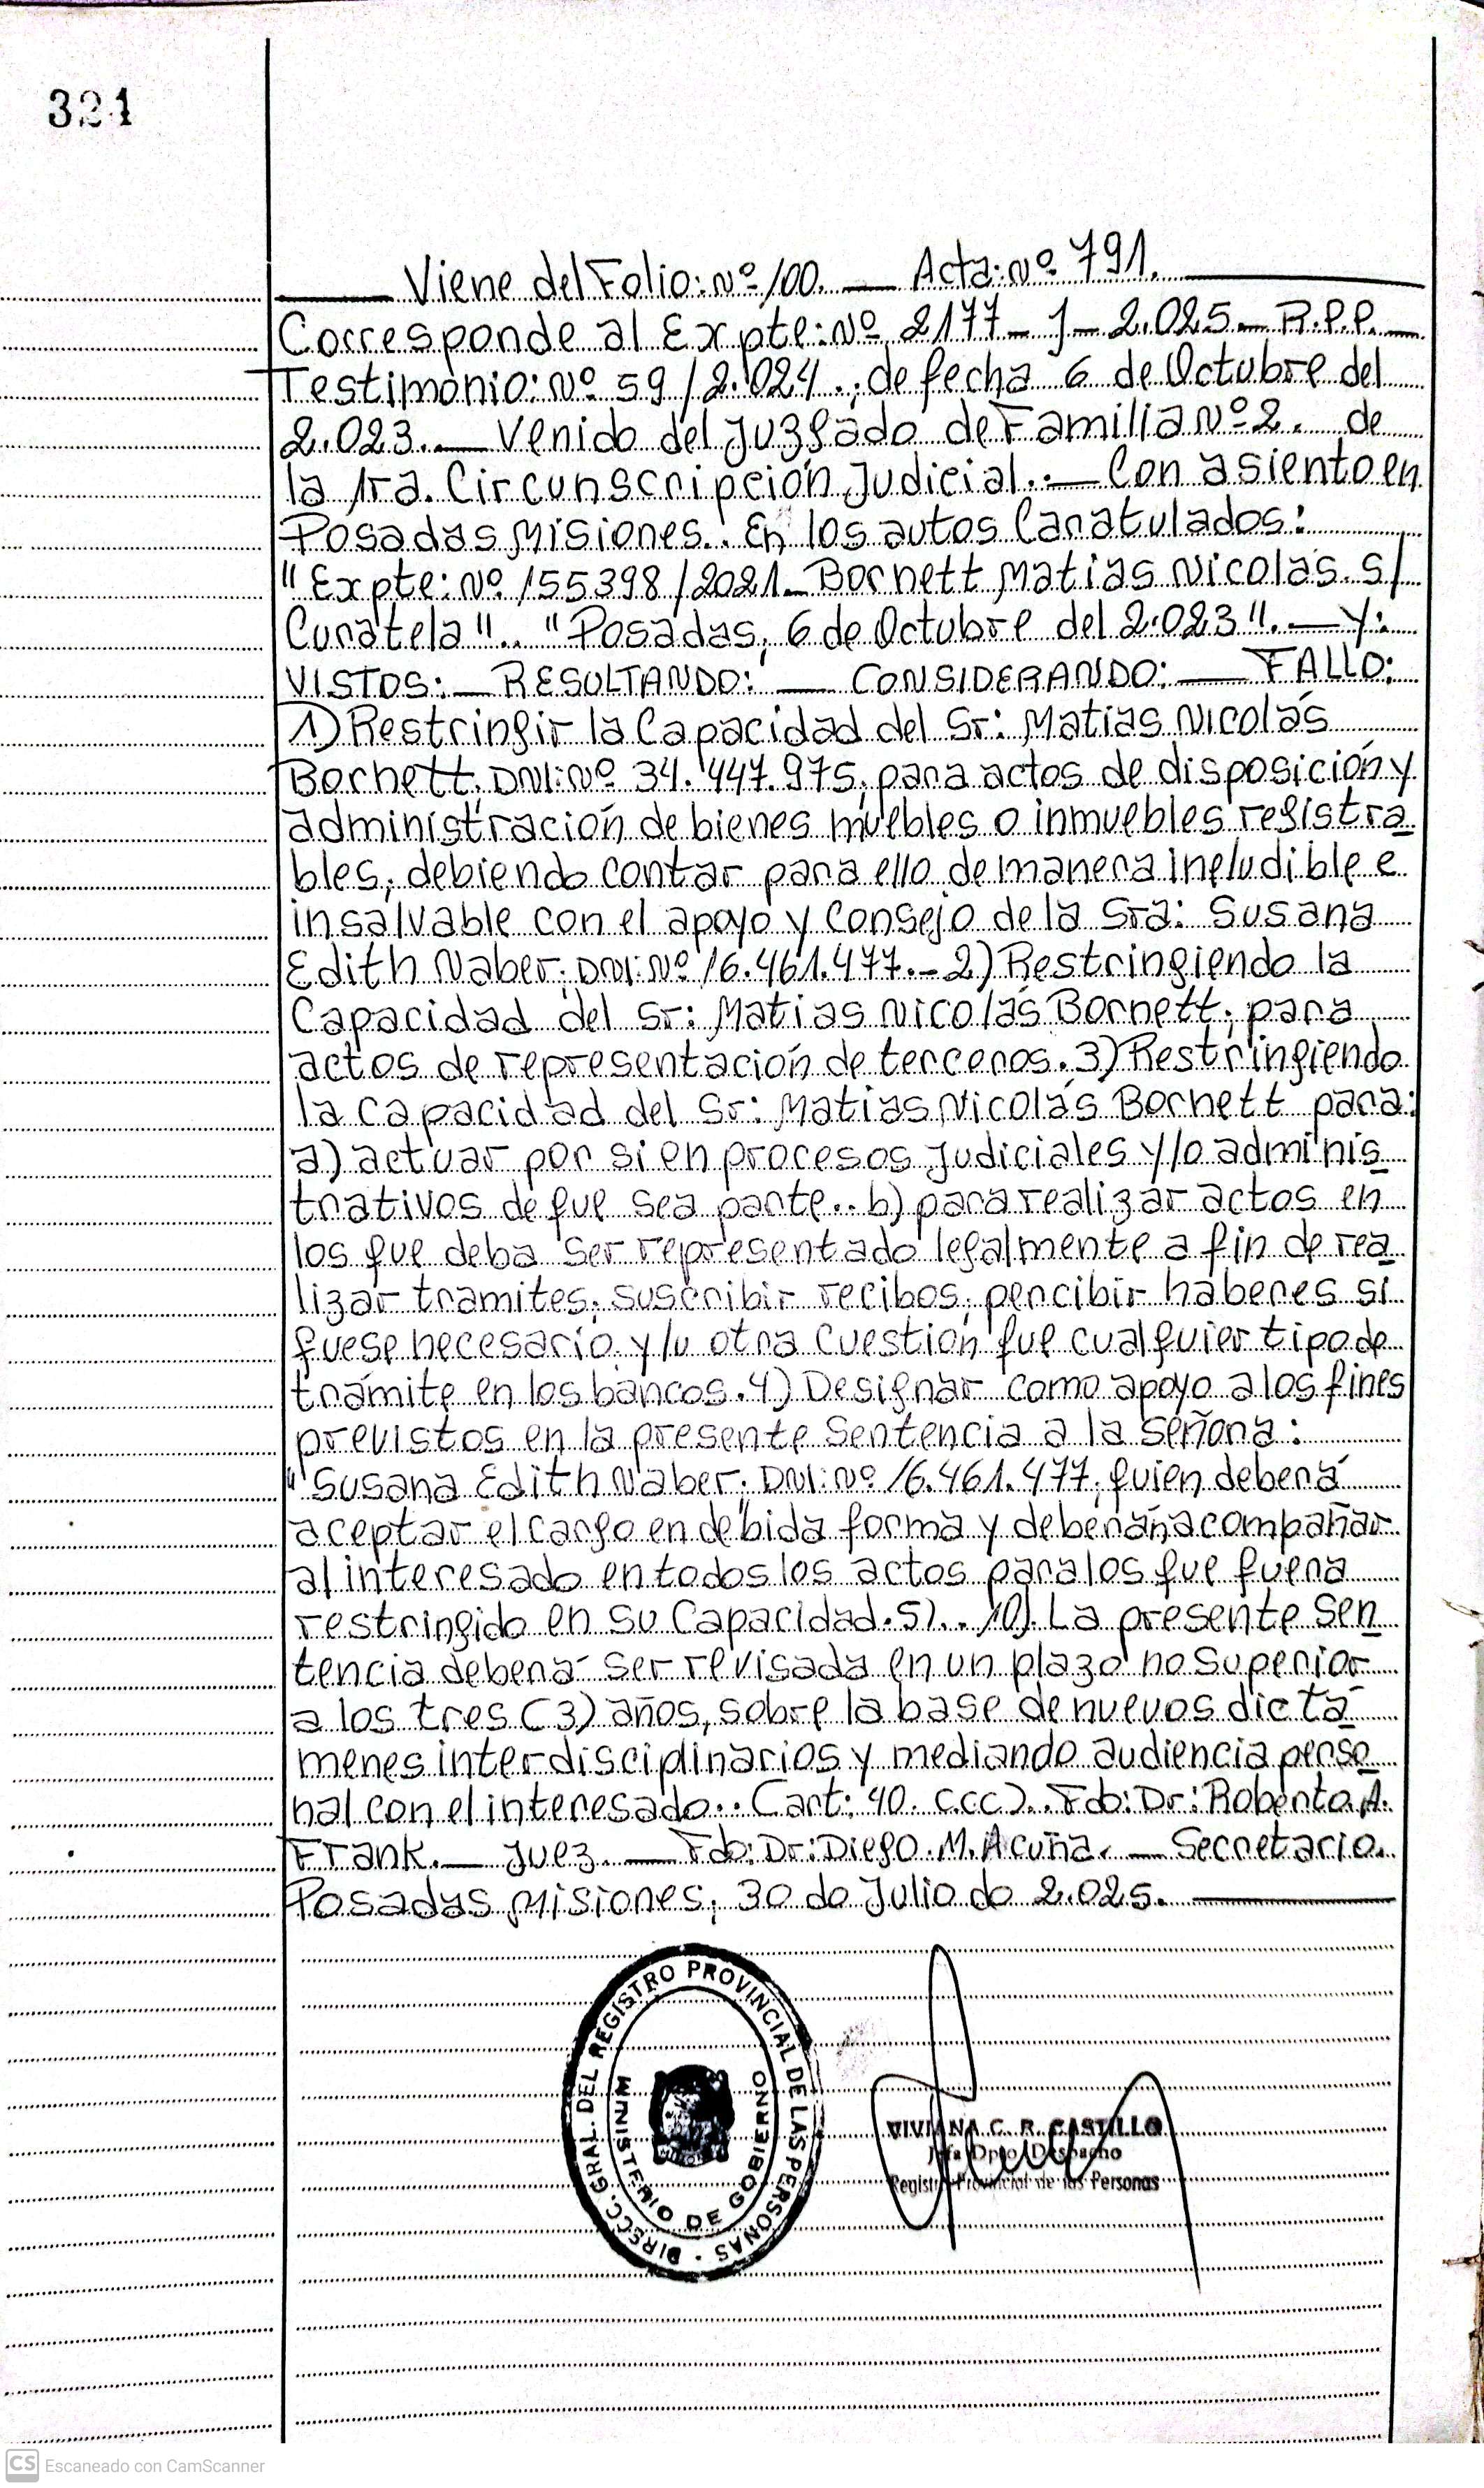 324
Viene del Folio: Nº 100. — Acta: Nº 791.
Corresponde al Expte: Nº 2177 - J - 2.025 - R.P.P. —
Testimonio: Nº 59 / 2.024 . ; de fecha 6 de Octubre del
2.023. — Venido del Juzgado de Familia Nº 2. de
la 1ra. Circunscripción Judicial. — Con asiento en
Posadas Misiones. En los autos Caratulados:
"Expte: Nº 155398 / 2021 - Bornett Matias Nicolás. s/
Curatela".. "Posadas, 6 de Octubre del 2.023". — Y:
VISTOS: — RESULTANDO: — CONSIDERANDO: — FALLO:
1) Restringir la Capacidad del Sr: Matias Nicolás
Bornett, DNI: Nº 34.447.975, para actos de disposición y
administración de bienes muebles o inmuebles registra
bles, debiendo contar para ello de manera ineludible e
insalvable con el apoyo y Consejo de la Sra: Susana
Edith Naber, DNI: Nº 16.461.477. - 2) Restringiendo la
Capacidad del Sr: Matias Nicolás Bornett, para
actos de representación de terceros. 3) Restringiendo
la Capacidad del Sr: Matias Nicolás Bornett para:
a) actuar por si en procesos Judiciales y/o adminis
trativos de que sea parte.. b) para realizar actos en
los que deba ser representado legalmente a fin de rea
lizar tramites, suscribir recibos, percibir haberes si
fuese necesario y/u otra Cuestión que cualquier tipo de
trámite en los bancos. 4) Designar como apoyo a los fines
previstos en la presente Sentencia a la Señora:
"Susana Edith Naber, DNI: Nº 16.461.477, quien deberá
aceptar el cargo en debida forma y deberán acompañar
al interesado en todos los actos para los que fuera
restringido en su Capacidad. 5).. 10). La presente Sen
tencia deberá ser revisada en un plazo no Superior
a los tres (3) años, sobre la base de nuevos dictá
menes interdisciplinarios y mediando audiencia perso
nal con el interesado.. (art: 40. CCC).. Fdo: Dr: Roberto A.
Frank. — Juez. — Fdo: Dr: Diego. M. Acuña. — Secretario.
Posadas Misiones, 30 do Julio do 2.025. —
DIRECC. GRAL. DEL REGISTRO PROVINCIAL DE LAS PERSONAS
MINISTERIO DE GOBIERNO
VIVIANA C. R. CASTILLO
Jefa Dpto. Despacho
Registro Provincial de las Personas
CS Escaneado con CamScanner